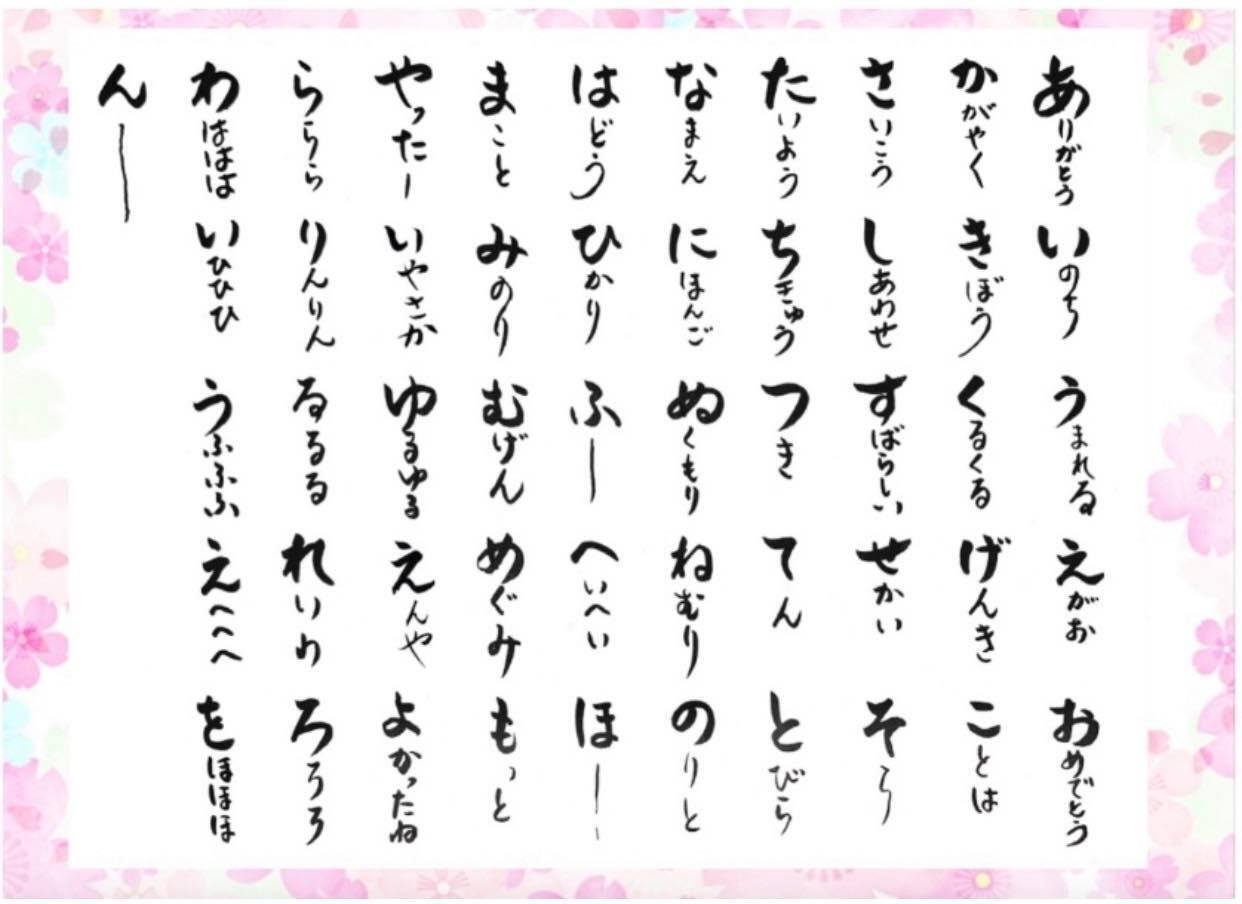 ありがとう
いのち
うまれる
えがお
おめでとう
かがやく
きぼう
くるくる
げんき
ことは
さいこう
しあわせ
すばらしい
せかい
そら
たいよう
ちきゅう
つき
てん
とびら
なまえ
にほんご
ぬくもり
ねむり
のりと
はどう
ひかり
ふー
へいへい
ほー
まこと
みのり
むげん
めぐみ
もっと
やったー
いやさか
ゆるゆる
えんや
よかったね
ららら
りんりん
るるる
れいわ
ろろろ
わははは
いひひひ
うふふふ
えへへへ
をほほほ
んー